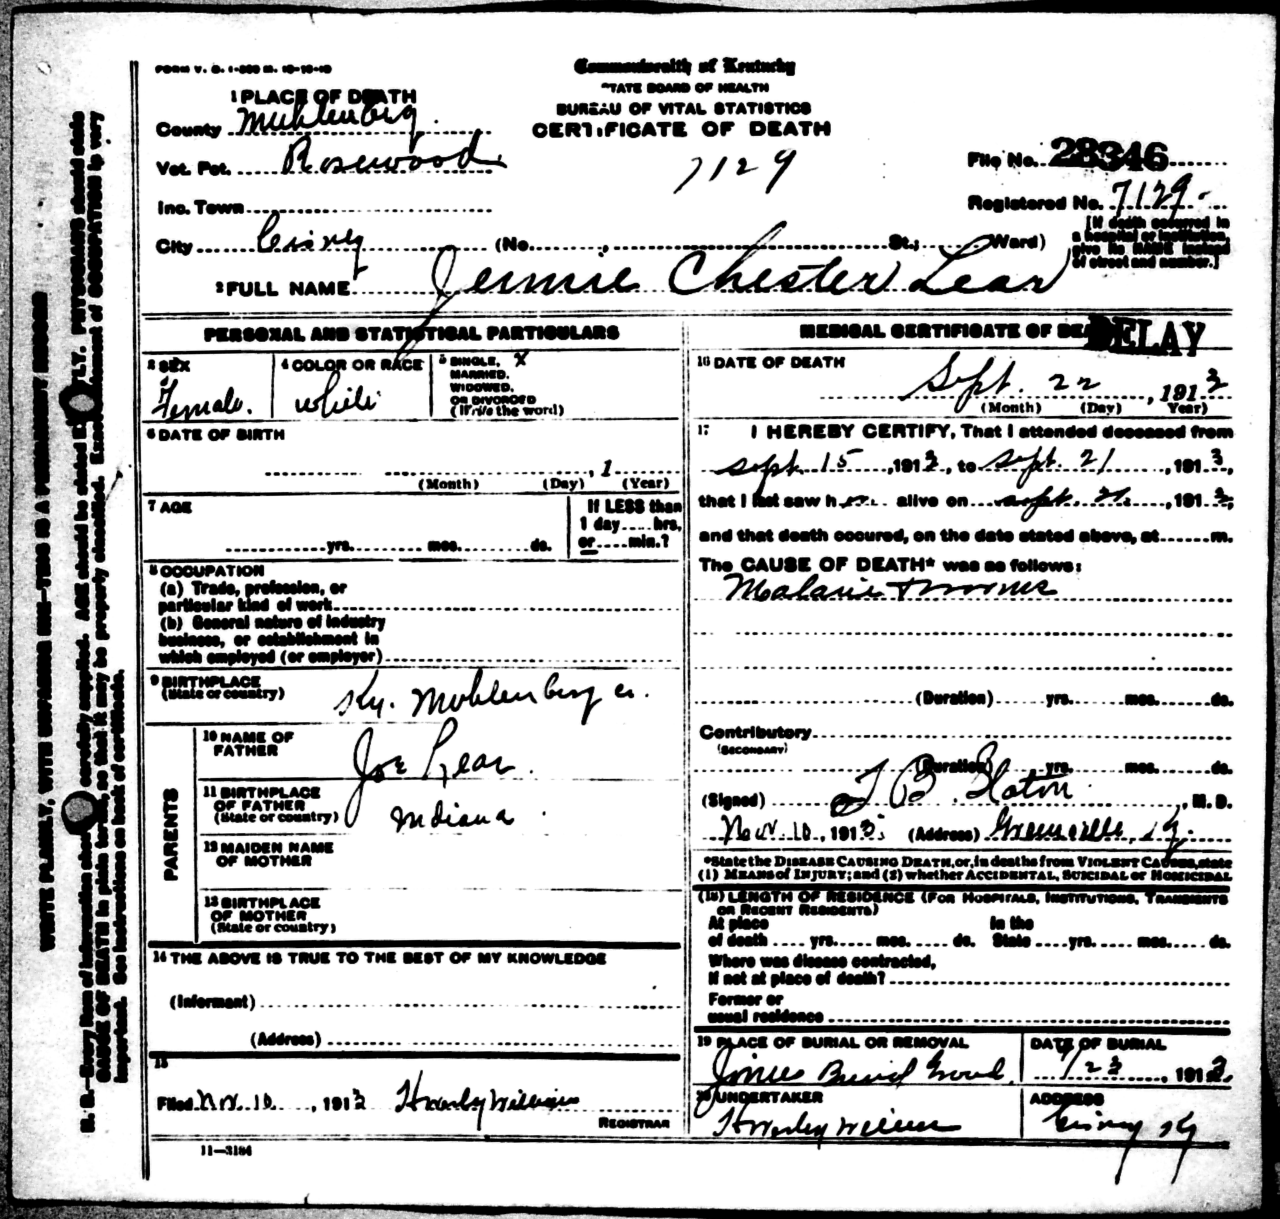 FORM V. S. 1-
Commonwealth of Kentucky
STATE BOARD OF HEALTH
BUREAU OF VITAL STATISTICS
CERTIFICATE OF DEATH
1 PLACE OF DEATH
County Muhlenberg
Vot. Pct. Rosewood
7129
File No. 28346
Inc. Town
Registered No. 7129
City Cisney (No. St.; Ward)
[If death occurred in a hospital or institution, give its NAME instead of street and number.]
2 FULL NAME Jennie Chester Lear
PERSONAL AND STATISTICAL PARTICULARS
3 SEX
Female.
4 COLOR OR RACE
white
5 SINGLE, X
MARRIED,
WIDOWED,
OR DIVORCED
(Write the word)
6 DATE OF BIRTH
, 1
(Month) (Day) (Year)
7 AGE
yrs. mos. ds.
If LESS than
1 day hrs.
or min.?
8 OCCUPATION
(a) Trade, profession, or
particular kind of work
(b) General nature of industry
business, or establishment in
which employed (or employer)
9 BIRTHPLACE
(State or country)
Ky. Mohlenberg co.
PARENTS
10 NAME OF
FATHER
Joe Lear.
11 BIRTHPLACE
OF FATHER
(State or country)
Indiana
12 MAIDEN NAME
OF MOTHER
13 BIRTHPLACE
OF MOTHER
(State or country)
14 THE ABOVE IS TRUE TO THE BEST OF MY KNOWLEDGE
(Informant)
(Address)
15
Filed Nov. 10 , 1913
REGISTRAR
11—3184
MEDICAL CERTIFICATE OF DEATH
DELAY
16 DATE OF DEATH
Sept. 22 , 1913
(Month) (Day) Year)
17 I HEREBY CERTIFY, That I attended deceased from
Sept. 15 , 1913, to Sept. 21 , 1913,
that I last saw her alive on Sept. 21. , 1913,
and that death occured, on the date stated above, at m.
The CAUSE OF DEATH* was as follows:
(Duration) yrs. mos. ds.
Contributory
(SECONDARY)
(Duration) yrs. mos. ds.
(Signed) T B Slaton , M. D.
Nov. 10. , 1913 (Address) Greenville, Ky.
*State the DISEASE CAUSING DEATH, or, in deaths from VIOLENT CAUSES, state
(1) MEANS of INJURY; and (2) whether ACCIDENTAL, SUICIDAL or HOMICIDAL
(18) LENGTH OF RESIDENCE (FOR HOSPITALS, INSTITUTIONS, TRANSIENTS
OR RECENT RESIDENTS)
At place In the
of death yrs. mos. ds. State yrs. mos. ds.
Where was disease contracted,
if not at place of death?
Former or
usual residence
19 PLACE OF BURIAL OR REMOVAL
DATE OF BURIAL
9/23 , 1913.
20 UNDERTAKER
ADDRESS
Cisney Ky
WRITE PLAINLY, WITH UNFADING INK—THIS IS A PERMANENT RECORD
N. B.—Every item of information should be carefully supplied. AGE should be stated EXACTLY. PHYSICIANS should state
CAUSE OF DEATH in plain terms, so that it may be properly classified. Exact statement of OCCUPATION is very
important. See instructions on back of certificate.